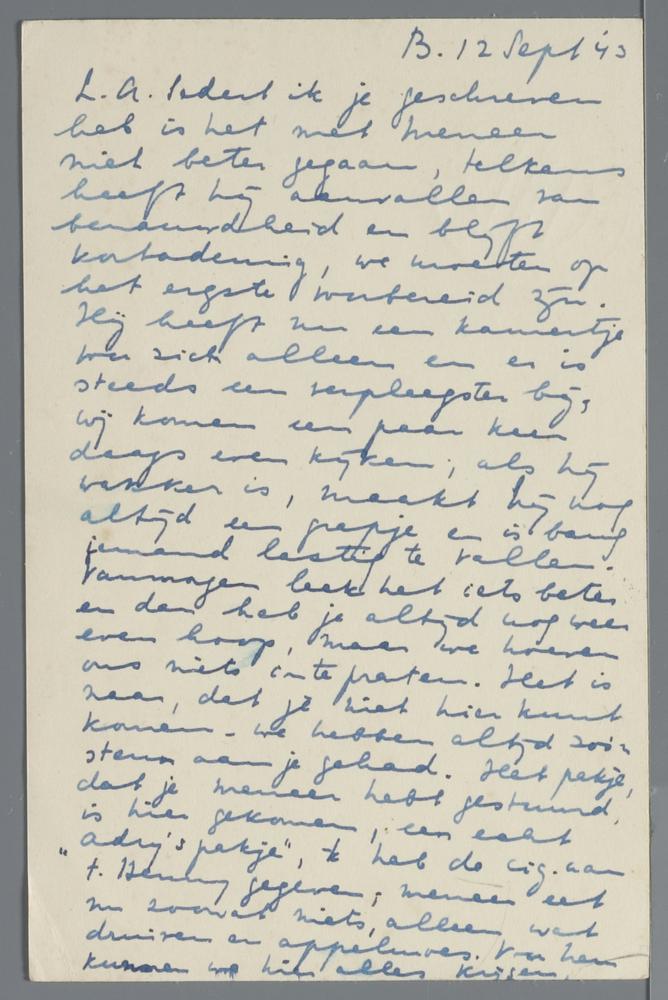 B. 12 Sept 43
L. A. Sedert ik je geschreven
heb is het met meneer
niet beter gegaan, telkens
heeft hij aanvallen van
benauwdheid en blijft
kortademig, we moeten op
het ergste voorbereid zijn.
Hij heeft nu een kamertje
voor zich alleen en er is
steeds een verpleegster bij,
wij komen een paar keer
daags even kijken; als hij
wakker is, maakt hij nog
altijd een grapje en is bang
iemand lastig te vallen.
Vanmorgen leek het iets beter
en dan heb je altijd nog weer
even hoop, maar we hoeven
ons niets in te praten. Het is
naar, dat je niet hier kunt
komen - we hebben altijd zoo'n
steun aan je gehad. Het pakje,
dat je meneer hebt gestuurd,
is hier gekomen, een echt
„Adry's pakje", ik heb de cig. aan
t. Henny gegeven; meneer eet
nu zoowat niets, alleen wat
druiven en appelmoes. Voor hem
kunnen we hier alles krijgen.